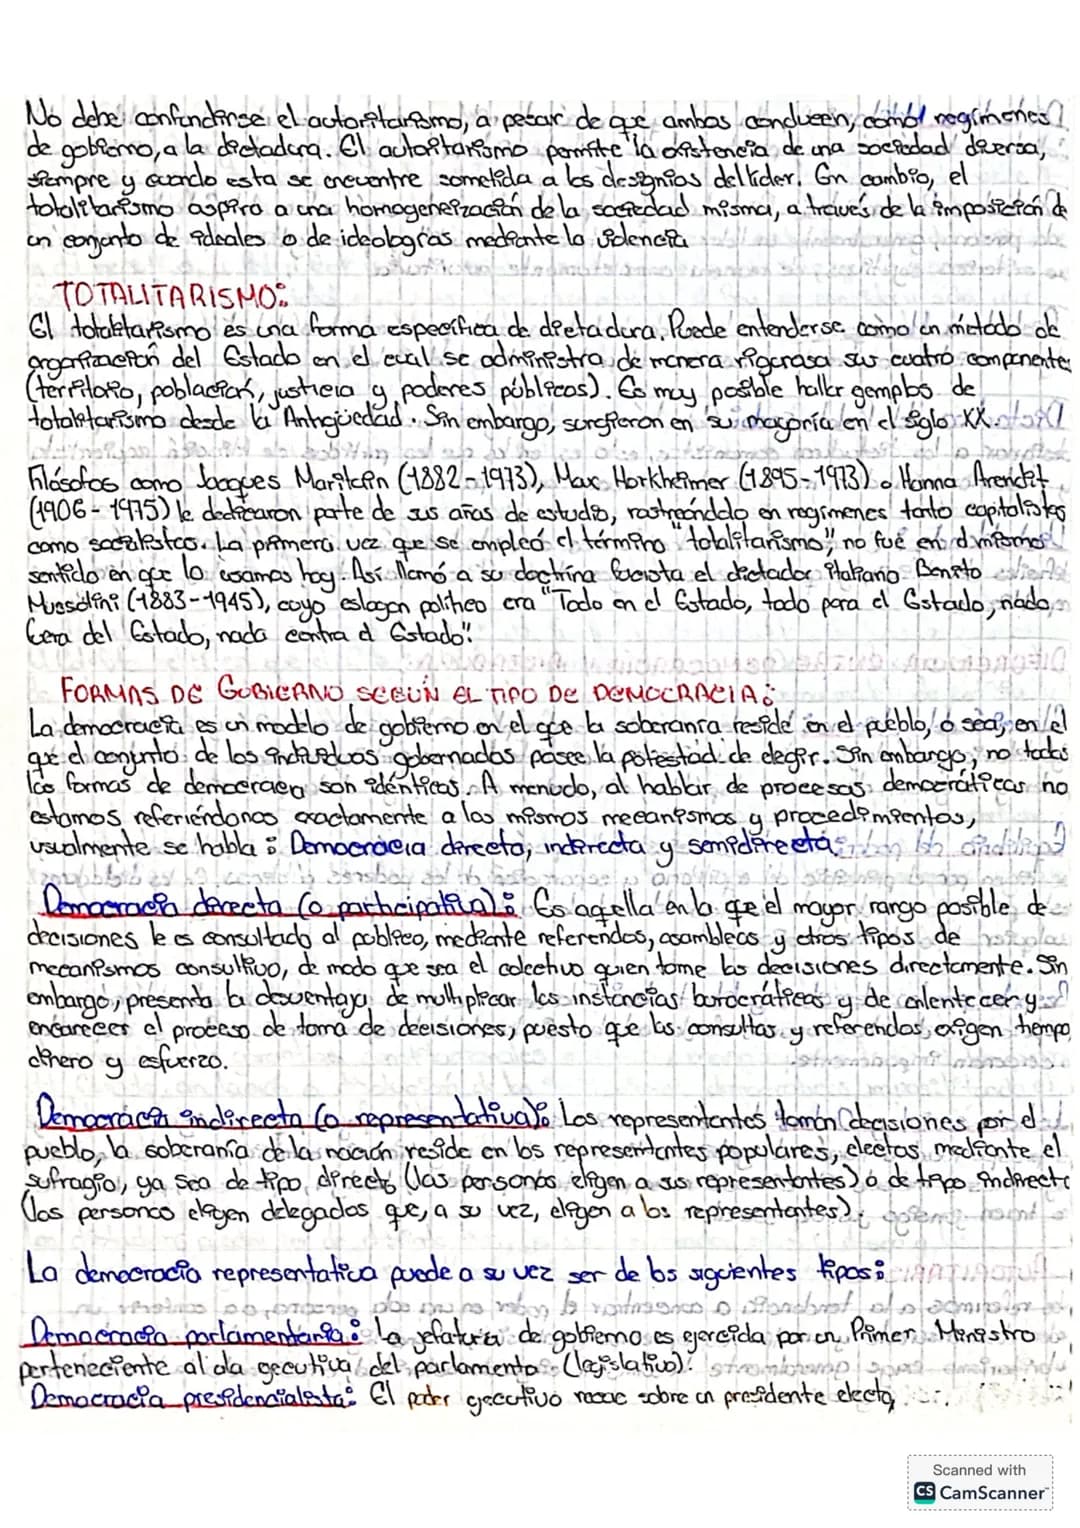 No debe confundirse el autoritarismo, a pesar de que ambos conducen, como regímenes
de gobierno, a la dictadura. El autoritarismo permite la existencia de una sociedad diversa,
siempre y cuando esta se encuentre sometida a los designios del lider. En cambio, el
totalitarismo aspira a una homogeneización de la sociedad misma, a través de la imposición de
un conjunto de ideales o de ideologías mediante la violencia
TOTALITARISMO:
El totalitarismo es una forma específica de dictadura. Puede entenderse como un método de
organización del Estado en el cual se administra de manera rigurosa sus cuatro componente
(territorio, población, justicia y poderes públicos). Es muy posible hallar ejemplos de
totalitarismo desde la Antigüedad. Sin embargo, surgieron en su mayoría en el siglo XX.
Filósofos como Jacques Maritain (1882-1973), Max Horkheimer (1895-1973) o Hanna Arendt
(1906-1975) le dedicaron parte de sus años de estudio, rastreándolo en regímenes tanto capitalistas
como socialistas. La primera vez que se empleó el término "totalitarismo", no fue en el mismo
sentido en que lo usamos hoy. Así llamó a su doctrina fascista el dictador italiano Benito
Mussolini (1883-1945), cuyo eslogan político era "Todo en el Estado, todo para el Estado, nada
fuera del Estado, nada contra el Estado".
FORMAS DE GOBIERNO SEGUN EL TIPO DE DEMOCRACIA:
La democracia es un modelo de gobierno en el que la soberanía reside en el pueblo, o sea, en el
que el conjunto de los individuos gobernados posee la potestad de elegir. Sin embargo, no todas
las formas de democracia son idénticas. A menudo, al hablar de procesos democráticos no
estamos refiriéndonos exactamente a los mismos mecanismos y procedimientos,
usualmente se habla: Democracia directa, indirecta y semidirecta
Democracia directa (o participativa): Es aquella en la que el mayor rango posible de
decisiones le es consultado al público, mediante referendos, asambleas y otros tipos de
mecanismos consultivo, de modo que sea el colectivo quien tome las decisiones directamente. Sin
embargo, presenta la desventaja de multiplicar las instancias burocráticas y de enlentecer y
encarecer el proceso de toma de decisiones, puesto que las consultas y referendos exigen tiempo,
dinero y esfuerzo.
Democracia indirecta (o representativa): Los representantes toman decisiones por el
pueblo, la soberanía de la nación reside en los representantes populares, electos mediante el
sufragio, ya sea de tipo directo (las personas eligen a sus representantes) o de tipo indirecto
(las personas eligen delegados que, a su vez, eligen a los representantes).
La democracia representativa puede a su vez ser de los siguientes tipos:
Democracia parlamentaria: la jefatura de gobierno es ejercida por un Primer Ministro
perteneciente al ala ejecutiva del parlamento (legislativo).
Democracia presidencialista: El poder ejecutivo recae sobre un presidente electo,
Scanned with
CS CamScanner